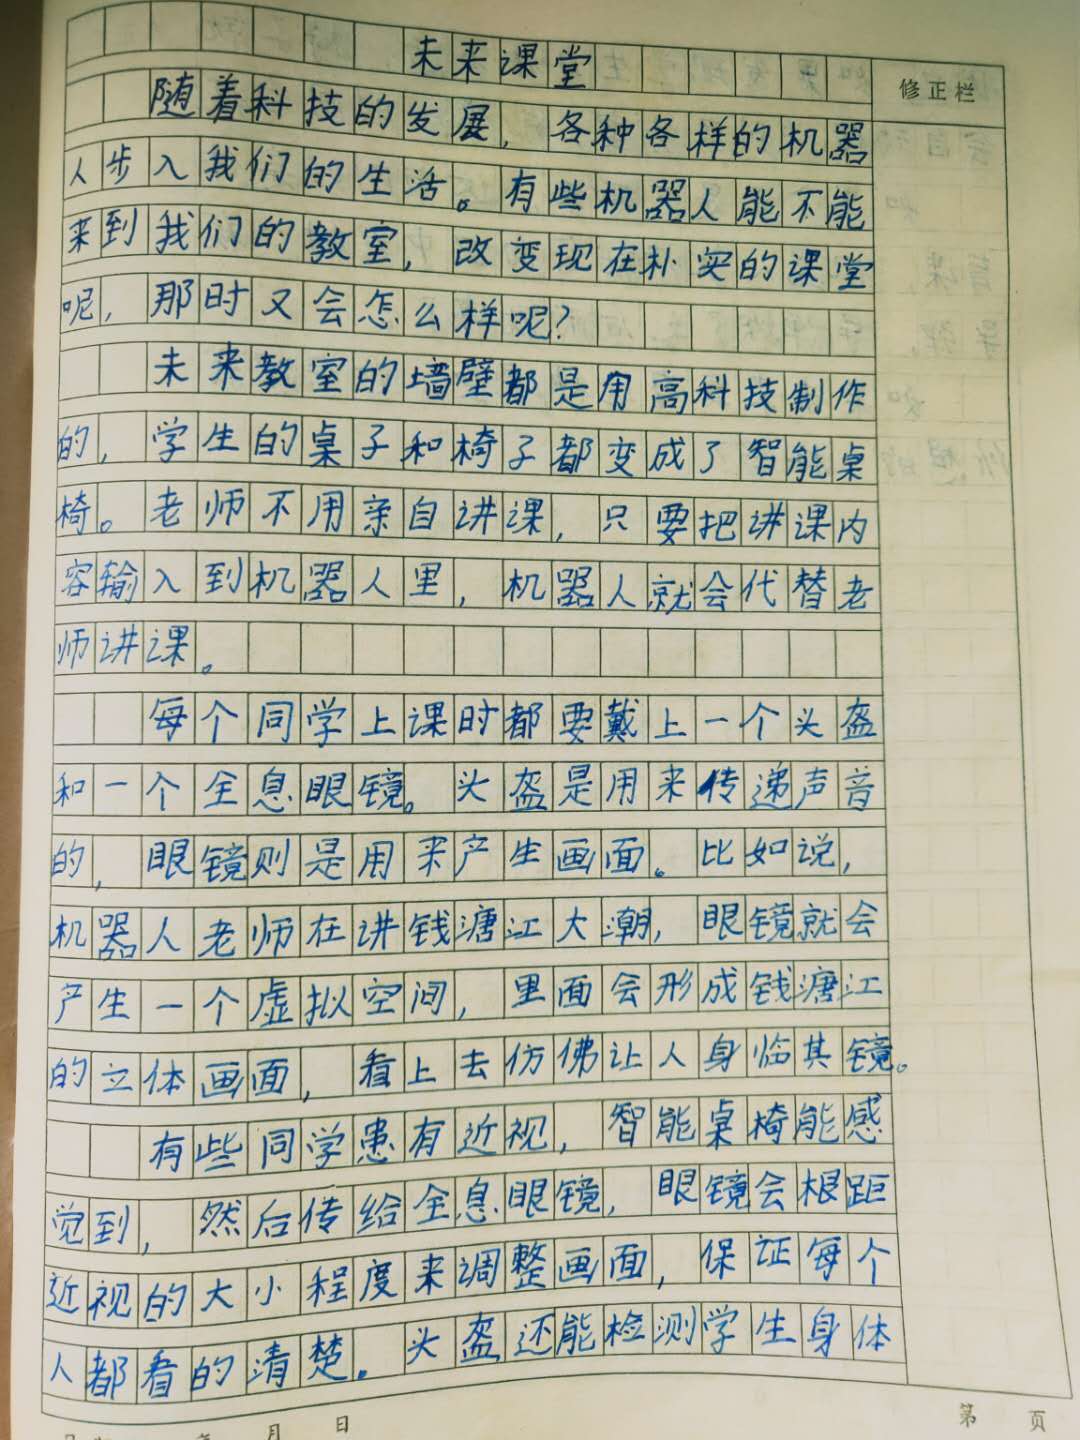 未来课堂
修正栏
随着科技的发展，各种各样的机器
人步入我们的生活。有些机器人能不能
来到我们的教室，改变现在朴实的课堂
呢，那时又会怎么样呢？
未来教室的墙壁都是用高科技制作
的，学生的桌子和椅子都变成了智能桌
椅。老师不用亲自讲课，只要把讲课内
容输入到机器人里，机器人就会代替老
师讲课。
每个同学上课时都要戴上一个头盔
和一个全息眼镜。头盔是用来传递声音
的，眼镜则是用来产生画面。比如说，
机器人老师在讲钱溏江大潮，眼镜就会
产生一个虚拟空间，里面会形成钱溏江
的立体画面，看上去仿佛让人身临其镜。
有些同学患有近视，智能桌椅能感
觉到，然后传给全息眼镜，眼镜会根距
近视的大小程度来调整画面，保证每个
人都看的清楚。头盔还能检测学生身体
年 月 日
第 页